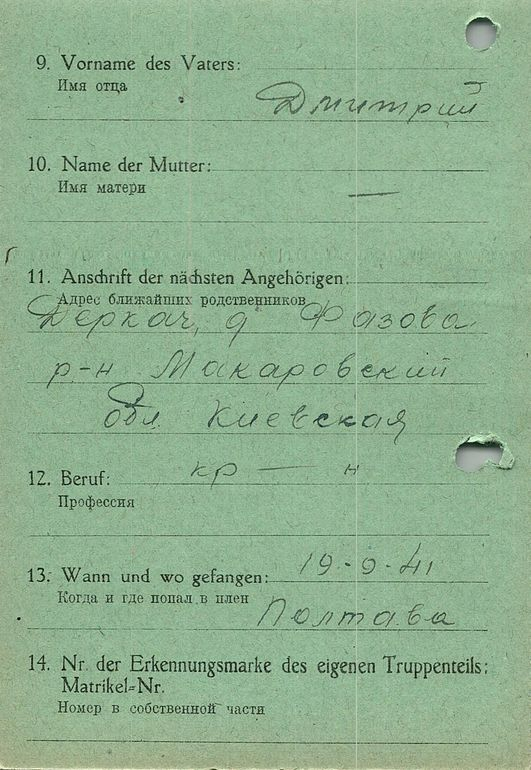 9. Vorname des Vaters:
Имя отца
Дмитрий
10. Name der Mutter:
Имя матери
—
11. Anschrift der nächsten Angehörigen:
Адрес ближайших родственников
Деркач, д Фазова
р-н Макаровский
обл Киевская
12. Beruf:
кр — н
Профессия
13. Wann und wo gefangen:
19-9-41
Когда и где попал в плен
Полтава
14. Nr. der Erkennungsmarke des eigenen Truppenteils:
Matrikel-Nr.
Номер в собственной части